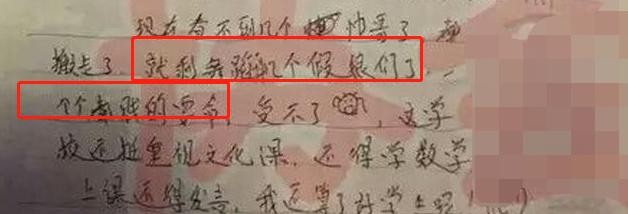 现在看不到几个帅哥了,
搬走了,就剩舞蹈队个假娘们了,一
个个都骚的要命,受不了,这学
校还挺重视文化课,还得学数学
上课还得发言,我还算了好学生呢!